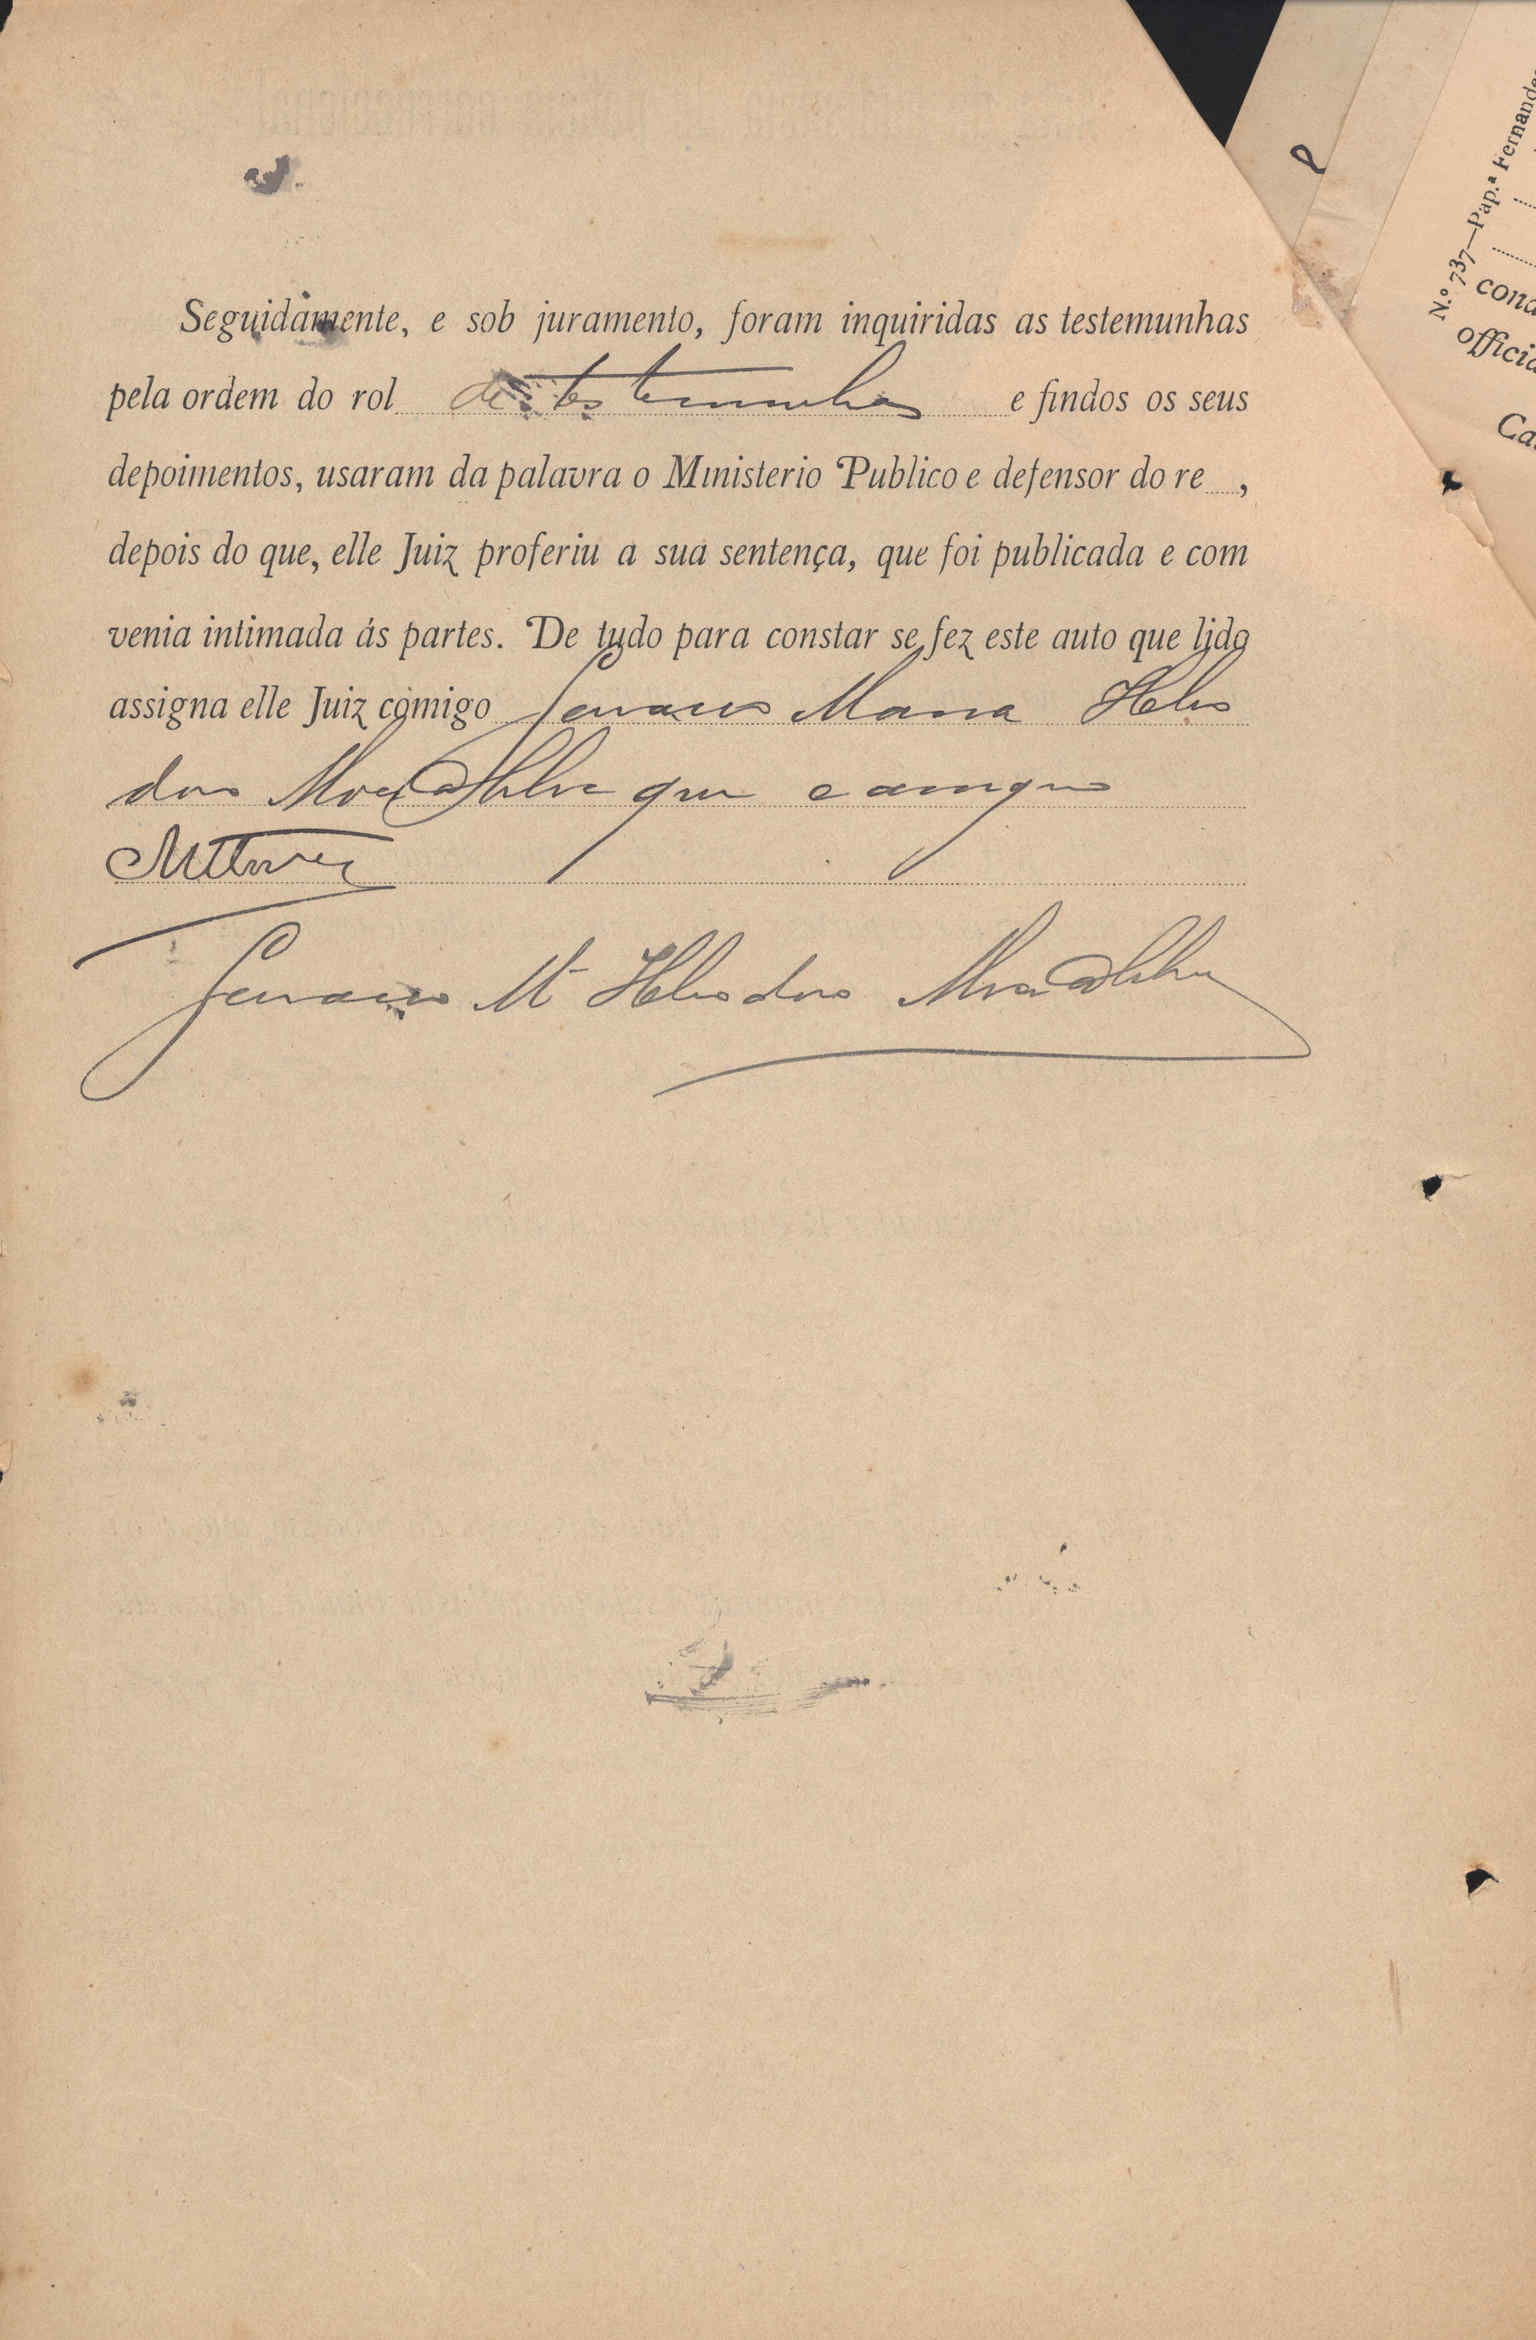 Seguidamente, e sob juramento, foram inquiridas as testemunhas
pela ordem do rol de testemunhas e findos os seus
depoimentos, usaram da palavra o Ministerio Publico e defensor do re ,
depois do que, elle Juiz proferiu a sua sentença, que foi publicada e com
venia intimada ás partes. De tudo para constar se fez este auto que lido
assigna elle Juiz comigo Gervacio Maria Helio
doro Silva que
Gervacio Mª Heliodoro Silva
N.º 737—Pap.ª Fernandes
cond
officia
Ca